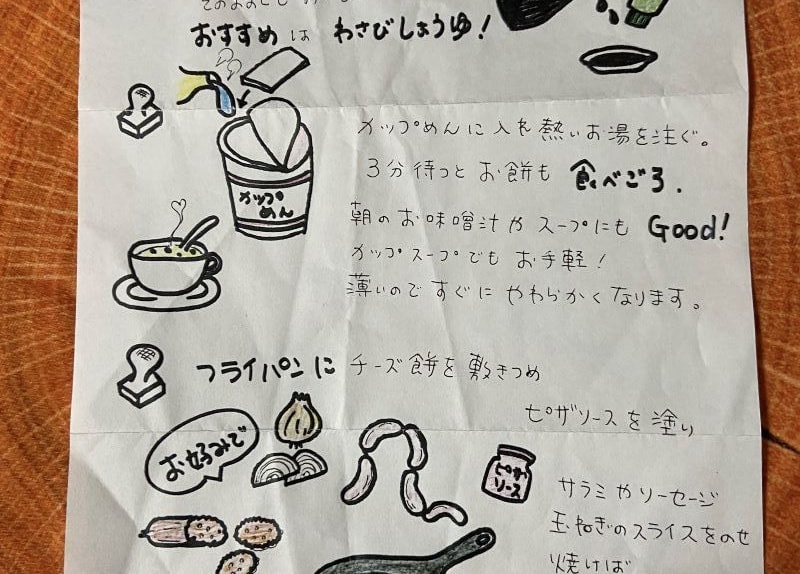 おすすめは わさびしょうゆ!
カップめんに入れ熱いお湯を注ぐ。
3分待つとお餅も 食べごろ.
カップ
めん
朝のお味噌汁やスープにも Good!
カップスープでもお手軽!
薄いのですぐにやわらかくなります。
フライパンにチーズ餅を敷きつめ
ピザソースを塗り
お好みで
ピザ
ソース
サラミやソーセージ
玉ねぎのスライスをのせ
焼けば